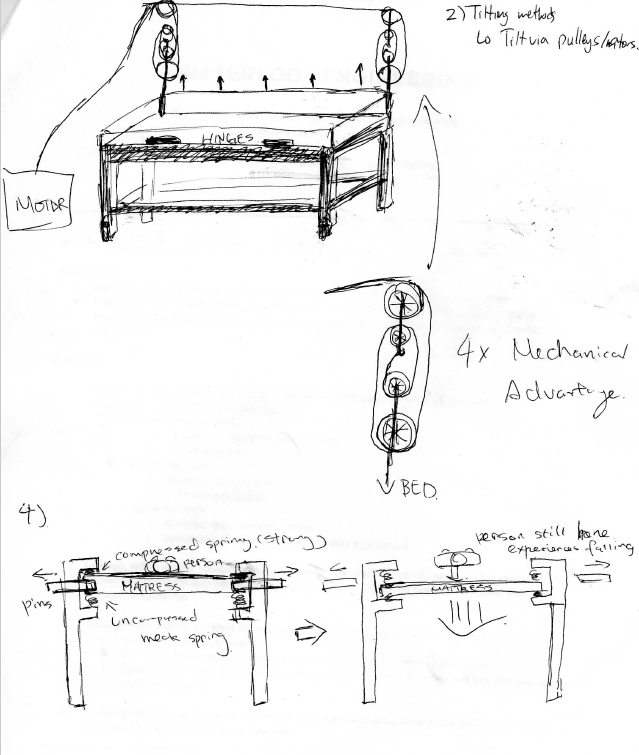 2) Tilting methods
Lo Tilt via pulleys/motors.
HINGES
MOTOR
4x Mechanical
Advantage.
BED.
4)
compressed spring. (strong)
person
MATRESS
pins
uncompressed
weak spring.
person still
experiences falling
MATTRESS